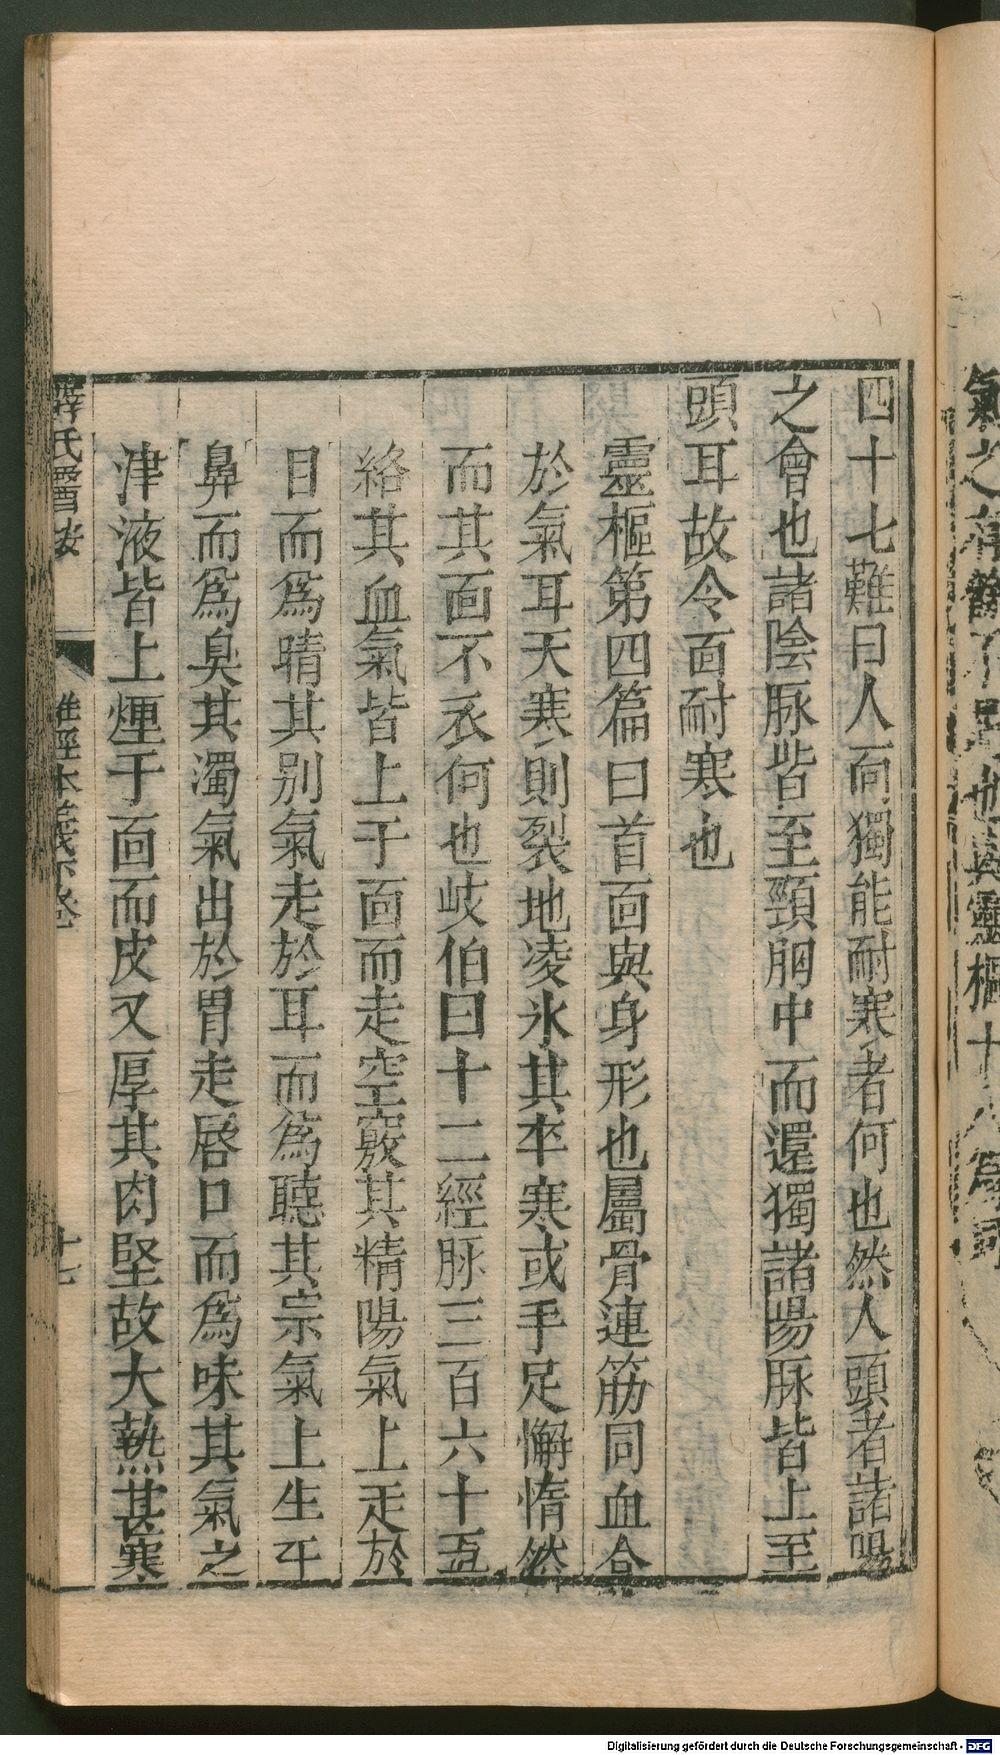 四十七難曰人面獨能耐寒者何也然人頭者諸陽
之會也諸陰脉皆至頸胸中而還獨諸陽脉皆上至
頭耳故令面耐寒也
靈樞第四篇曰首面與身形也屬骨連筋同血合
於氣耳天寒則裂地凌氷其卒寒或手足懈惰然
而其面不衣何也岐伯曰十二經脉三百六十五
絡其血氣皆上于面而走空竅其精陽氣上走於
目而爲睛其別氣走於耳而爲聽其宗氣上生于
鼻而爲臭其濁氣出於胃走唇口而爲味其氣之
津液皆上煙于面而皮又厚其肉堅故大熱甚寒
薛氏醫按
難經本義下卷
十七
Digitalisierung gefördert durch die Deutsche Forschungsgemeinschaft - DFG